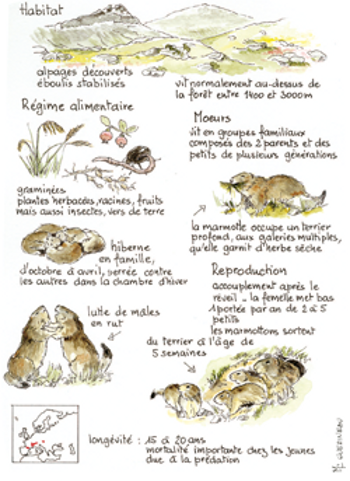 Habitat
alpages découverts
éboulis stabilisés
vit normalement au-dessus de
la forêt entre 1400 et 3000m
Régime alimentaire
graminées
plantes herbacées, racines, fruits
mais aussi insectes, vers de terre
Moeurs
vit en groupes familiaux
composés des 2 parents et des
petits de plusieurs générations
la marmotte occupe un terrier
profond, aux galeries multiples,
qu'elle garnit d'herbe sèche
hiberne
en famille,
d'octobre à avril, serrée contre
les autres dans la chambre d'hiver
Reproduction
accouplement après le
réveil _ la femelle met bas
1 portée par an de 2 à 5
petits
les marmottons sortent
du terrier à l'âge de
5 semaines
lutte de mâles
en rut
longévité : 15 à 20 ans
mortalité importante chez les jeunes
due à la prédation